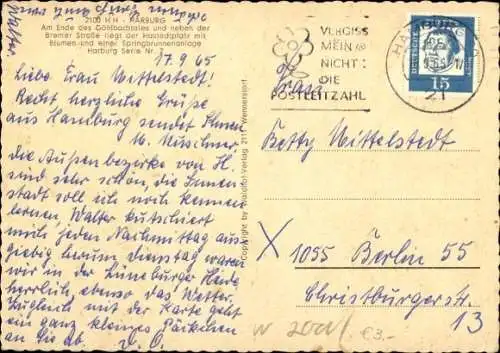 2100 HH - HARBURG
Am Ende des Göhlbachtales und neben der
Bremer Straße liegt der Hastedtplatz mit
Blumen- und einer Springbrunnenanlage
Harburg Serie Nr.
17.9.65
Liebe Frau Wittelstedt!
Recht herzliche Grüße
aus Hamburg sendet Ihnen
M. Mischner.
die Außenbezirke von H.
sind sehr schön, die Innen
stadt soll ich noch kennen
lernen, Walter kutschiert
mich jeden Nachmittag aus
giebig herum, dienstag waren
wir in der Lüneburger Heide
herrlich, ebenso das Wetter.
Zugleich mit der Karte geht
ein ganz kleines Päckchen
an Sie ab.
Copyright by Waldthof-Verlag 211 Wennerstorf
VERGISS
MEIN
NICHT
DIE
POSTLEITZAHL
HAMBURG
21
DEUTSCHE
15
Frau
Betty Wittelstedt
X
1055 Berlin 55
Christburgerstr.
13
€3.-